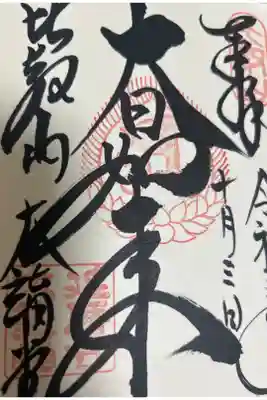 奉拝
令和
十月三日
大日如来
比叡山 大講堂